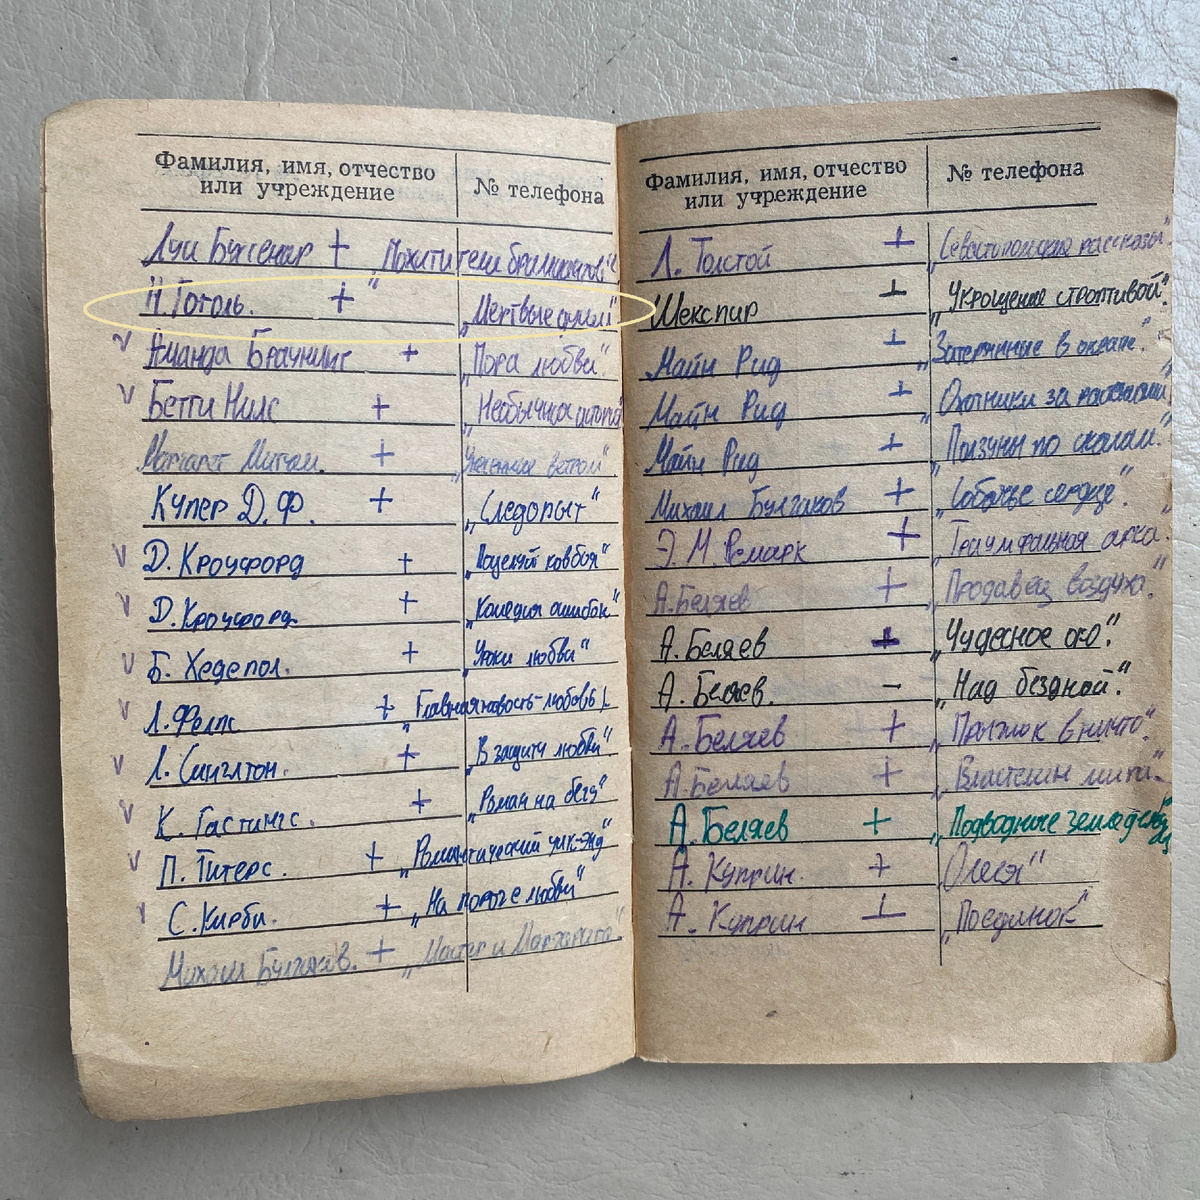 Фамилия, имя, отчество
или учреждение
№ телефона
Луи Буссенар + „Похитители бриллиантов“
Н. Гоголь. + „Мертвые души“
v Аманда Браунинг + „Пора любви“.
v Бетти Нилс + „Необычная история“
Маргарет Митчел. + „Унесенные ветром“
Купер Д. Ф. + „Следопыт“
v Д. Кроуфорд + „Поцелуй ковбоя“
v Д. Кроуфорд + „Комедия ошибок“
v Б. Хедепол. + „Уроки любви“
v Л. Фелпс + „Главная новость - любовь“
v Л. Синглтон. + „В защиту любви“
v К. Гастингс. + „Роман на бегу“
v П. Питерс. + „Романтический уик-энд“
v С. Кирби. + „На пороге любви“
Михаил Булгаков. + „Мастер и Маргарита“
Фамилия, имя, отчество
или учреждение
№ телефона
Л. Толстой + „Севастопольские рассказы“
Шекспир + „Укрощение строптивой“.
Майн Рид + „Затерянные в океане“.
Майн Рид + „Охотники за растениями“
Майн Рид + „Ползуны по скалам“.
Михаил Булгаков + „Собачье сердце“.
Э. М. Ремарк + „Триумфальная арка“.
А. Беляев + „Продавец воздуха“.
А. Беляев + „Чудесное око“.
А. Беляев. - „Над бездной“.
А. Беляев + „Прыжок в ничто“.
А. Беляев + „Властелин мира“.
А. Беляев + „Подводные земледельцы
А. Куприн. + „Олеся“
А. Куприн + „Поединок“